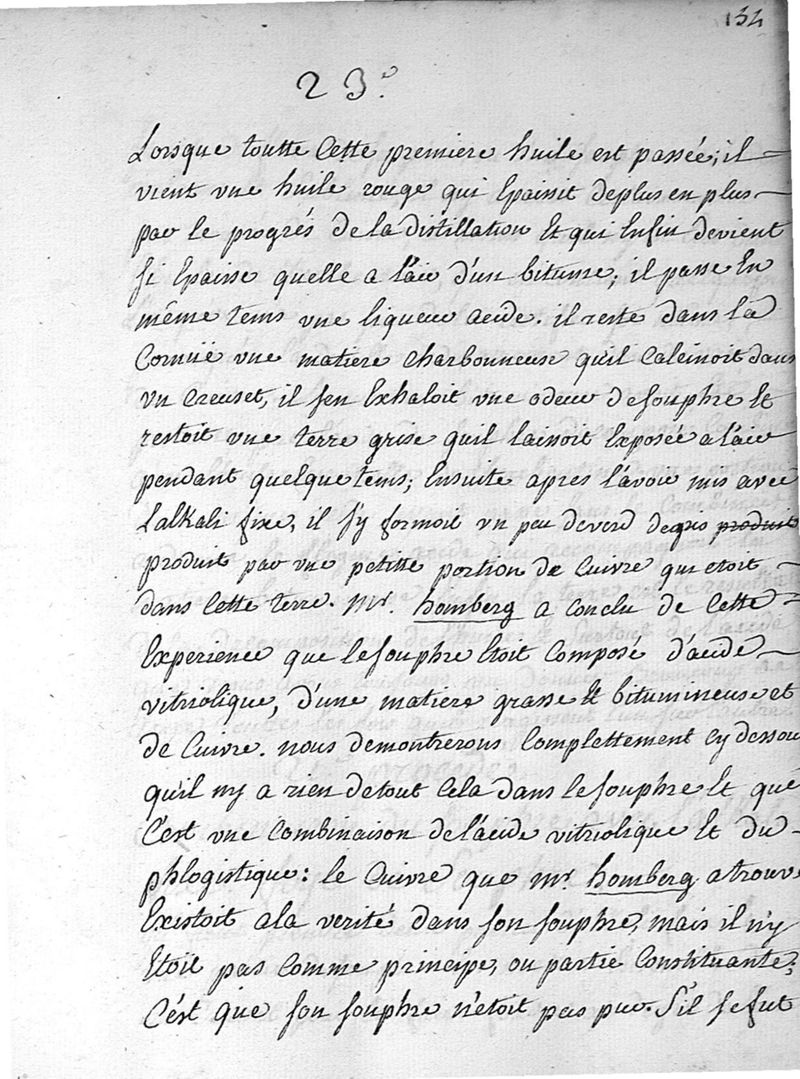 134
23.e
Lorsque toutte Cette premiere huile est passée, il
vient vne huile rouge qui Epaissit deplus en plus
par le progrés de la distillation Et qui Enfin devient
si Epaisse quelle a l'air d'un bitume; il passe En
même tems vne liqueur acide. il reste dans la
Cornüe vne matiere charbonneuse qu'il Calcinoit dans
vn Creuset, il s'en Exhaloit vne odeur de souphre Et
restoit vne terre grise qu'il laissoit Exposée a l'air
pendant quelque tems; Ensuite apres l'avoir mis avec
Lalkali fixe, il s'y formoit vn peu deverd degris produit
produit par vne petitte portion de Cuivre qui etoit
dans Cette terre. Mr. homberg a conclu de Cette
Experience que le souphre Etoit Composé d'acide
vitriolique, d'une matiere grasse Et bitumineuse et
de Cuivre. nous demontrerons Complettement Cy dessou
qu'il ny a rien detout Cela dans le souphre Et que
C'est vne Combinaison de l'acide vitriolique Et du
phlogistique: le Cuivre que Mr. homberg a trouvé
Existoit a la verité dans son souphre, mais il n'y
Etoit pas Comme principe, ou partie Constituante;
C'est que son souphre n'etoit pas pur. S'il se fut